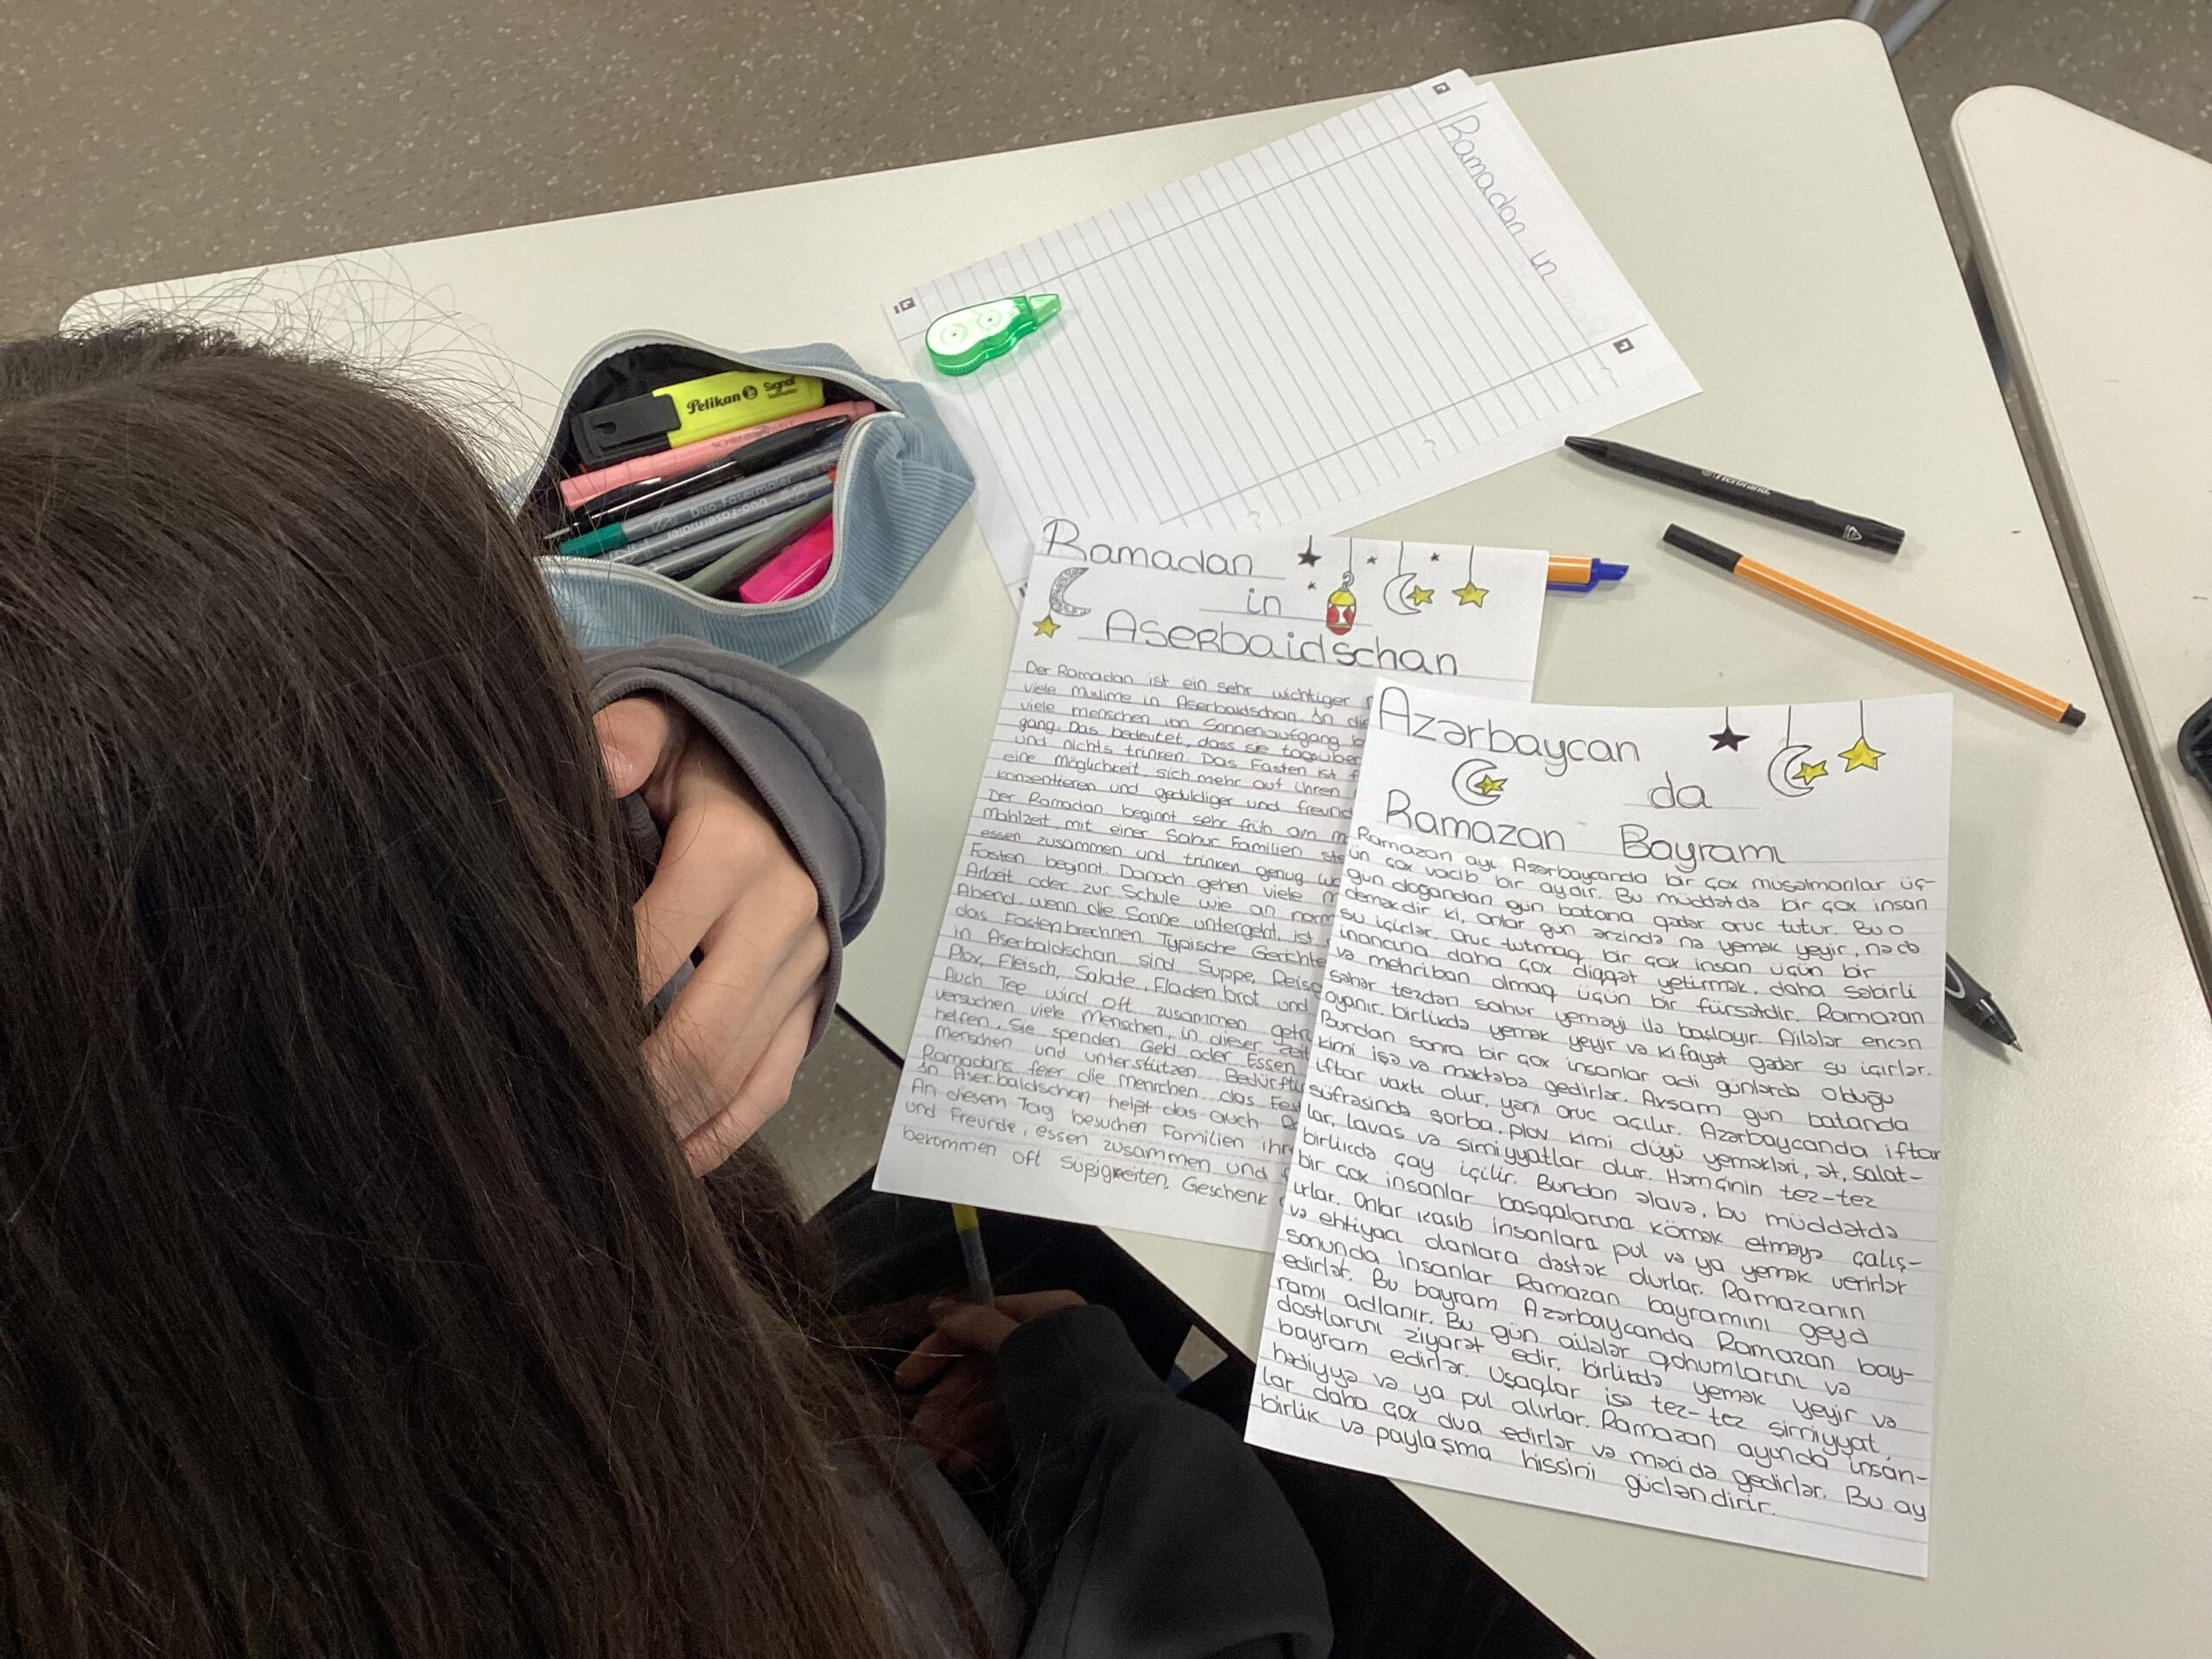 Ramadan in
Pelikan
Signal
Duo-Fasermaler
Duo-Fasermaler
Ramadan
in
Aserbaidschan
Der Ramadan ist ein sehr wichtiger
viele Muslime in Aserbaidschan. In die
viele menschen von Sonnenaufgang b
gang. Das bedeutet, dass sie tagsüber
und nichts trinken. Das Fasten ist f
eine möglichkeit, sich mehr auf ihren
konzentieren und geduldiger und freund
Der Ramadan beginnt sehr früh am m
Mahlzeit, mit einer Sahur Familien ste
essen zusammen und trinken genug wa
Fasten beginnt. Danach gehen viele m
Arbeit oder zur Schule wie an norm
Abend, wenn die Sonne untergeht, ist
das Fastenbrechnen. Typische Gerichte
in Aserbaidschan sind Suppe, Reisg
Plov, Fleisch, Salate, Fladenbrot und
Auch Tee wird oft zusammen getr
versuchen viele Menschen, in dieser Zeit
helfen. Sie spenden Geld oder Essen
menschen und unterstützen Bedürfti
Ramadans feier die menchen das Fes
In Aserbaidschan heißt das auch
An diesem Tag besuchen Familien ihr
und Freunde, essen zusammen und
bekommen oft Süßigkeiten, Geschenk
Azərbaycan
da
Ramazan Bayramı
Ramazan ayı Azərbaycanda bir çox müsəlmanlar üç-
ün çox vacib bir aydır. Bu müddətdə bir çox insan
gun dogandan gün batana qədər oruc tutur. Bu o
deməkdir ki, onlar gun ərzində nə yemək yeyir, nə də
su içirlər. Oruc tutmaq bir çox insan üçün bir
inancına daha çox diqqət yetirmək, daha səbirli
və mehriban olmaq üçün bir fürsətdir. Ramazan
səhər tezdən sahur yeməyi ilə başlayır. Ailələr encən
oyanır, birlikdə yemək yeyir və kifayət qədər su içirlər.
Bundan sonra bir çox insanlar adi günlərdə olduğu
kimi işə və məktəbə gedirlər. Axsam gün batanda
iftar vaxtı olur, yəni oruc açılır. Azərbaycanda iftar
süfrəsində şorba, plov kimi düyü yeməkləri, ət, salat-
lar, lavaş və şirniyyatlar olur. Həmçinin tez-tez
birlikdə çay içilir. Bundan əlavə, bu müddətdə
bir çox insanlar başqalarına kömək etməyə çalış-
ırlar. Onlar kasıb insanlara pul və ya yemək verirlər
və ehtiyacı olanlara dəstək olurlar. Ramazanın
sonunda insanlar Ramazan bayramını geyd
edirlər. Bu bayram Azərbaycanda Ramazan bay-
ramı adlanır. Bu gün ailələr qohumlarını və
dostlarını ziyarət edir, birlikdə yemək yeyir və
bayram edirlər. Uşaqlar isə tez-tez şirniyyat,
hədiyyə və ya pul alırlar. Ramazan ayında insan-
lar daha çox dua edirlər və məcidə gedirlər. Bu ay
birlik və paylaşma hissini gücləndirir.